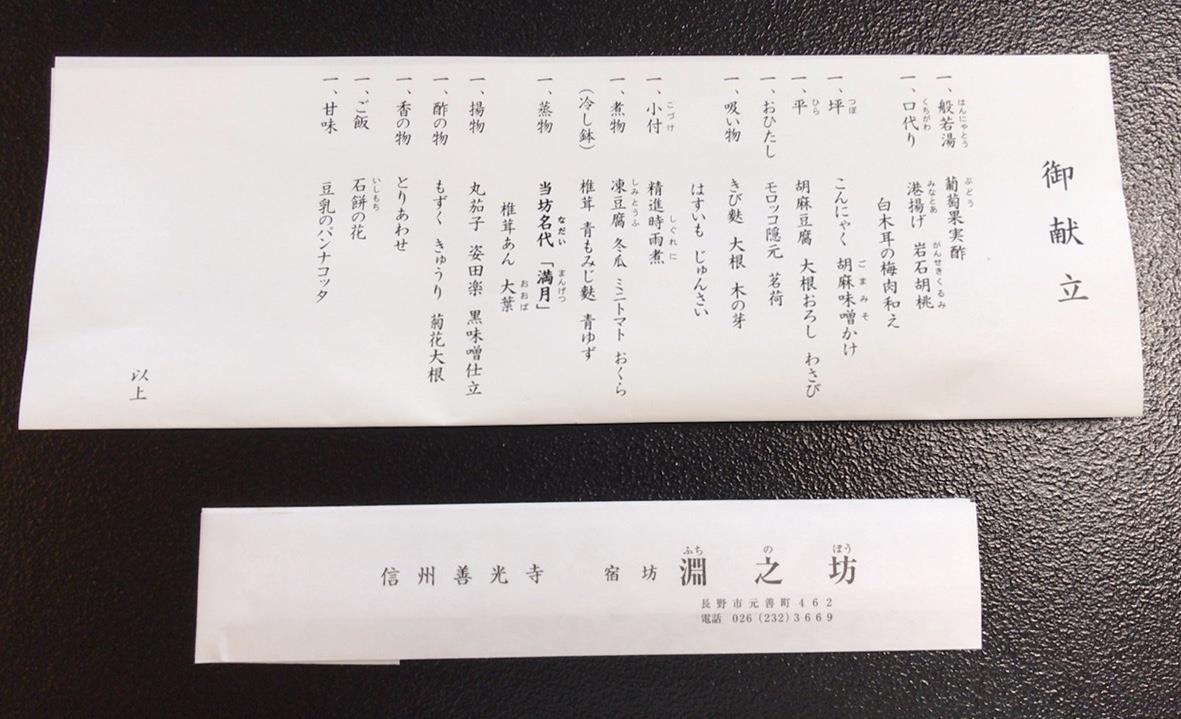 御献立
一、般若湯 葡萄果実酢
はんにゃとう ぶどう
一、口代り 港揚げ 岩石胡桃
くちがわ みなとあ がんせきくるみ
白木耳の梅肉和え
一、坪 こんにゃく 胡麻味噌かけ
つぼ ごまみそ
一、平 胡麻豆腐 大根おろし わさび
ひら
一、おひたし モロッコ隠元 茗荷
一、吸い物 きび麩 大根 木の芽
はすいも じゅんさい
一、小付 精進時雨煮
こづけ しぐれに
一、煮物 凍豆腐 冬瓜 ミニトマト おくら
しみとうふ
（冷し鉢） 椎茸 青もみじ麩 青ゆず
一、蒸物 当坊名代「満月」
なだい まんげつ
椎茸あん 大葉
おおば
一、揚物 丸茄子 姿田楽 黒味噌仕立
一、酢の物 もずく きゅうり 菊花大根
一、香の物 とりあわせ
一、ご飯 石餅の花
いしもち
一、甘味 豆乳のパンナコッタ
以上
信州善光寺 宿坊 淵之坊
ふち の ぼう
長野市元善町462
電話 026(232)3669